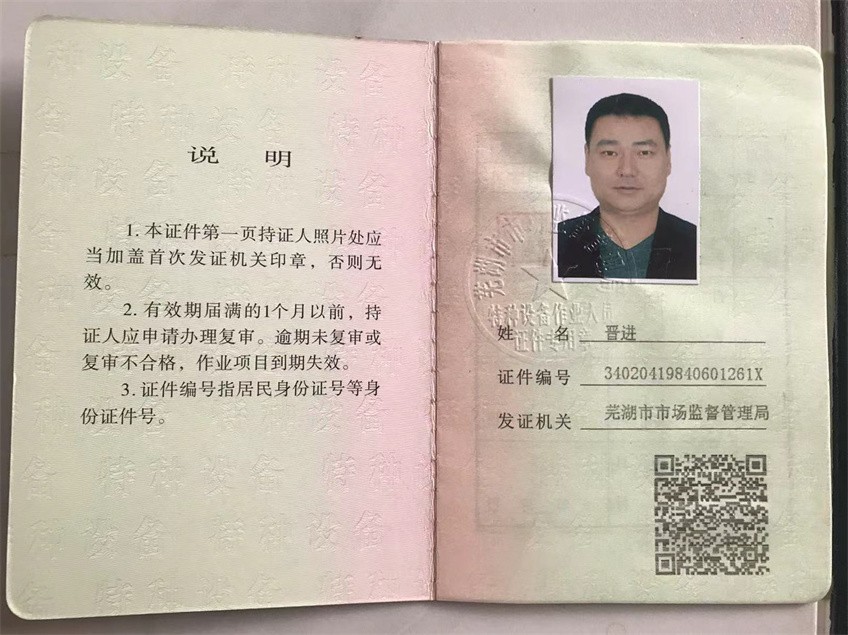 说 明
1. 本证件第一页持证人照片处应
当加盖首次发证机关印章，否则无
效。
2. 有效期届满的1个月以前，持
证人应申请办理复审。逾期未复审或
复审不合格，作业项目到期失效。
3. 证件编号指居民身份证号等身
份证件号。
芜湖市市场监
特种设备作业人员
证件专用章
姓 名 晋进
证件编号 34020419840601261X
发证机关 芜湖市市场监督管理局